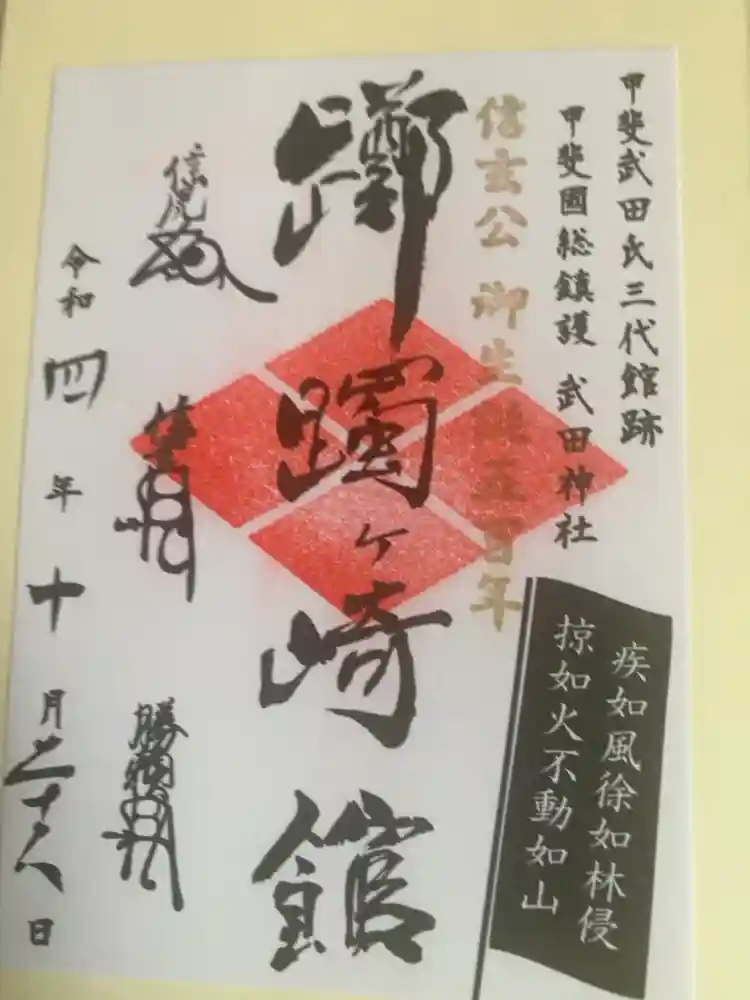 甲斐武田氏三代館跡
甲斐國総鎮護 武田神社
信玄公 御生誕五百年
躑躅ヶ崎館
疾如風徐如林侵
掠如火不動如山
信虎
信玄
勝頼
令和四年十月二十八日